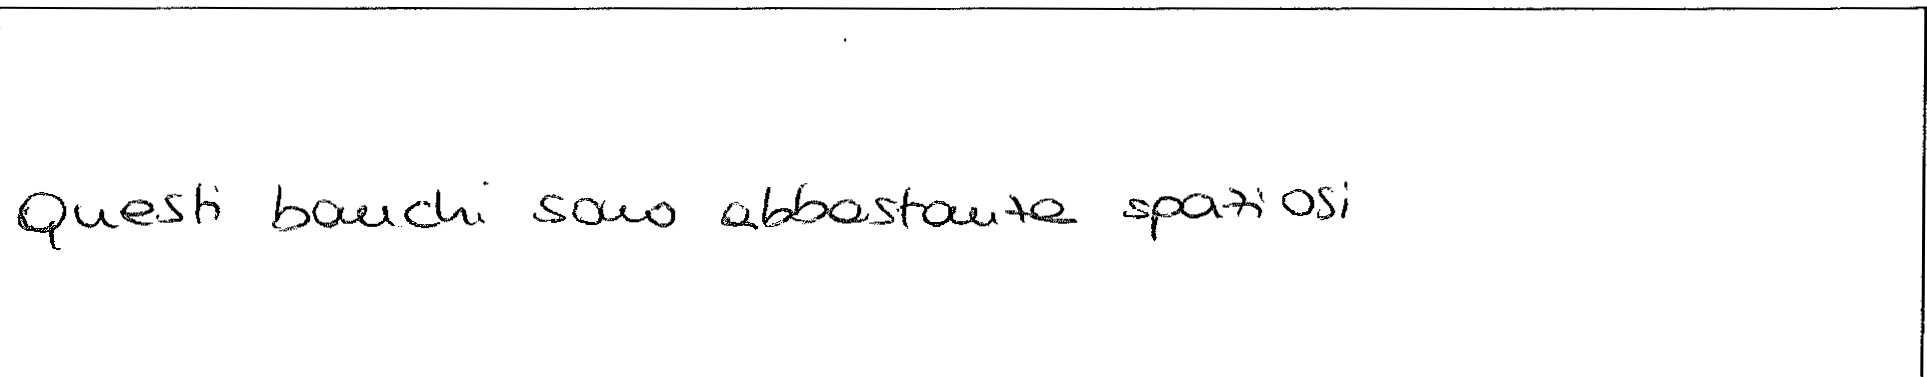 Questi banchi sono abbastanza spaziosi